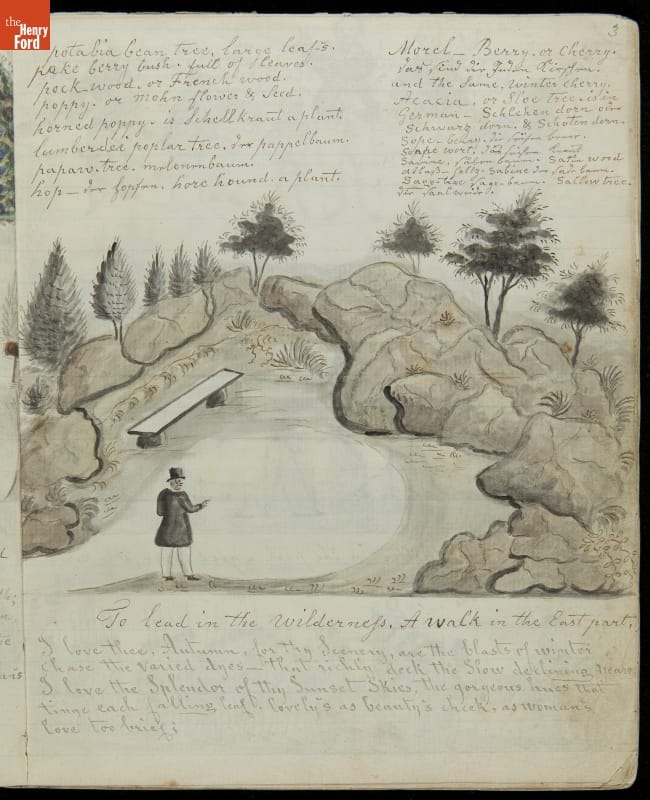 the
Henry
Ford
3
potabia bean tree, large leafs.
poke berry bush. full of leaves.
pock wood, or French wood.
poppy. or mohn flower & seed.
horned poppy. is Schellkraut a plant.
lumberdes poplar tree, der pappelbaum.
papaw. tree. melounbaum.
hop – der hopfen. hore hound. a plant.
Morel – Berry. or Cherry.
das sind die Juden Kirschen.
and the Same, Winter cherry.
Acacia, or Sloe tree. is in
German – Schlehen dorn. oder
Schwarz dorn. & Schoten dorn.
Sope – berry. die seifen beere.
Sope wort, das seifen kraut
Sabine. baum. Satin wood
atlas – holtz. Sabine der Sade baum.
Sago-tree Sago baum. Sallow tree.
die Saalweide.
To lead in the Wilderness. A walk in the East part.
I love thee, Autumn, for thy Scenery, are the blasts of winter
Chase the varied dyes – that richly deck the Slow declining years
I love the Splendor of thy Sunset Skies, the gorgeous hues that
tinge each falling leaf, lovely's as beauty's cheek. as woman's
love too brief;